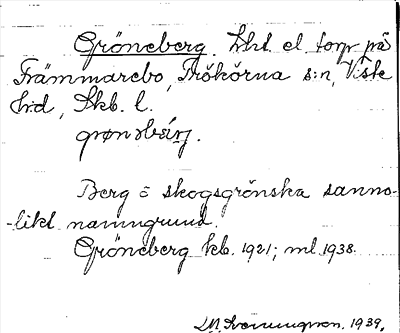 Gröneberg. Lht. el. torp på
Främmarebo, Trökörna s:n, Viste
hd, Skb. l.
grønəbærj.
Berg o skogsgrönska sanno-
-likt namngrund.
Gröneberg kb. 1921; ml 1938.
1939.